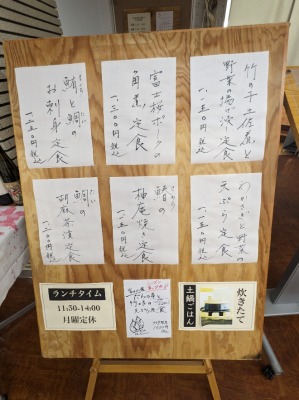 竹の子土佐煮と
野菜の揚げ浸し定食
一、一五〇円 税込
富士桜ポークの
角煮定食
一、三〇〇円 税込
鯖と鯛の
お刺身定食
一、二五〇円 税込
わかさぎと野菜の
天ぷら定食
一、二〇〇円 税込
さわら
鰆の
柚庵焼き定食
一、二五〇円 税込
たい
鯛の
胡麻茶漬定食
一、二〇〇円 税込
ランチタイム
11:30-14:00
月曜定休
土鍋ごはん
炊きたて